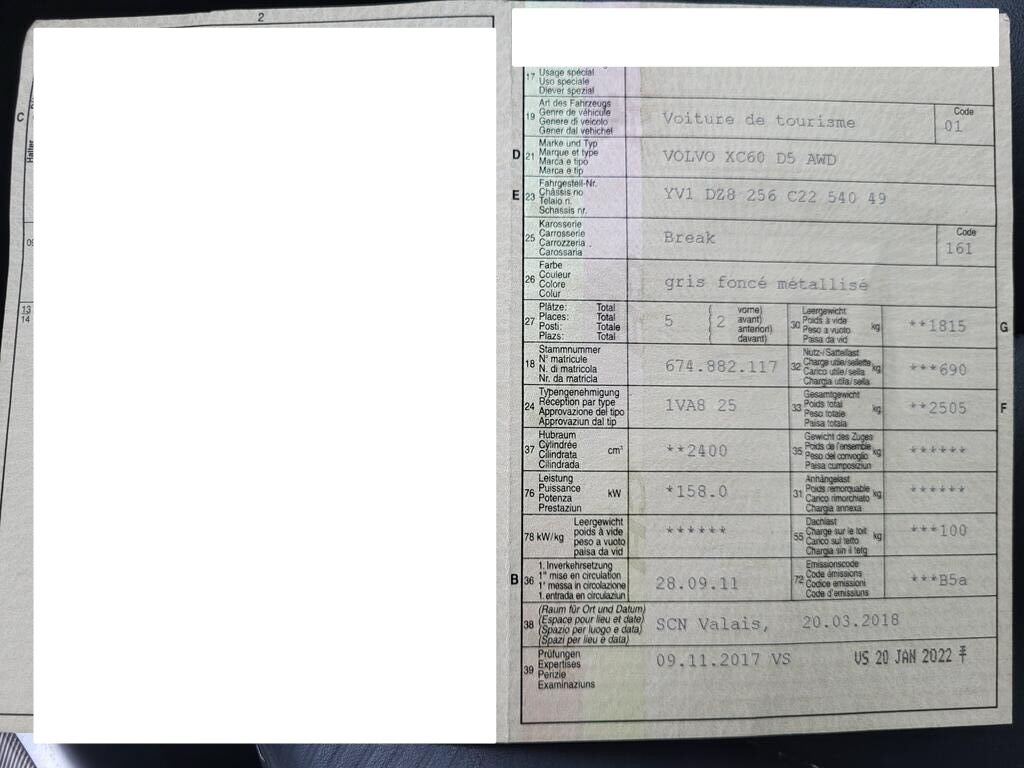 2
C
Halter
09
13
14
17 Usage spécial
Uso speciale
Diever spezial
19 Art des Fahrzeugs
Genre de véhicule
Genere di veicolo
Gener dal vehichel
Voiture de tourisme
Code
01
D 21 Marke und Typ
Marque et type
Marca e tipo
Marca e tip
VOLVO XC60 D5 AWD
E 23 Fahrgestell-Nr.
Châssis no
Telaio n.
Schassis nr.
YV1 DZ8 256 C22 540 49
25 Karosserie
Carrosserie
Carrozzeria
Carossaria
Break
Code
161
26 Farbe
Couleur
Colore
Colur
gris foncé métallisé
27 Plätze: Total
Places: Total
Posti: Totale
Plazs: Total
5
vorne)
avant)
anteriori)
davant)
2
30 Leergewicht
Poids à vide
Peso a vuoto
Paisa da vid
kg
**1815
G
18 Stammnummer
N° matricule
N. di matricola
Nr. da matricla
674.882.117
32 Nutz-/Sattellast
Charge utile/sellette
Carico utile/sella
Chargia utila/sella
kg
***690
24 Typengenehmigung
Réception par type
Approvazione del tipo
Approvaziun dal tip
1VA8 25
33 Gesamtgewicht
Poids total
Peso totale
Paisa totala
kg
**2505
F
37 Hubraum
Cylindrée
Cilindrata
Cilindrada
cm³
**2400
35 Gewicht des Zuges
Poids de l'ensemble
Peso del convoglio
Paisa cumposiziun
kg
******
76 Leistung
Puissance
Potenza
Prestaziun
kW
*158.0
31 Anhängelast
Poids remorquable
Carico rimorchiato
Chargia annexa
kg
******
78 kW/kg Leergewicht
poids à vide
peso a vuoto
paisa da vid
******
55 Dachlast
Charge sur le toit
Carico sul tetto
Chargia sin il tetg
kg
***100
B 36 1. Inverkehrsetzung
1re mise en circulation
1a messa in circolazione
1. entrada en circulaziun
28.09.11
72 Emissionscode
Code émissions
Codice emissioni
Code d'emissiuns
***B5a
38 (Raum für Ort und Datum)
(Espace pour lieu et date)
(Spazio per luogo e data)
(Spazi per lieu e data)
SCN Valais, 20.03.2018
39 Prüfungen
Expertises
Perizie
Examinaziuns
09.11.2017 VS
VS 20 JAN 2022